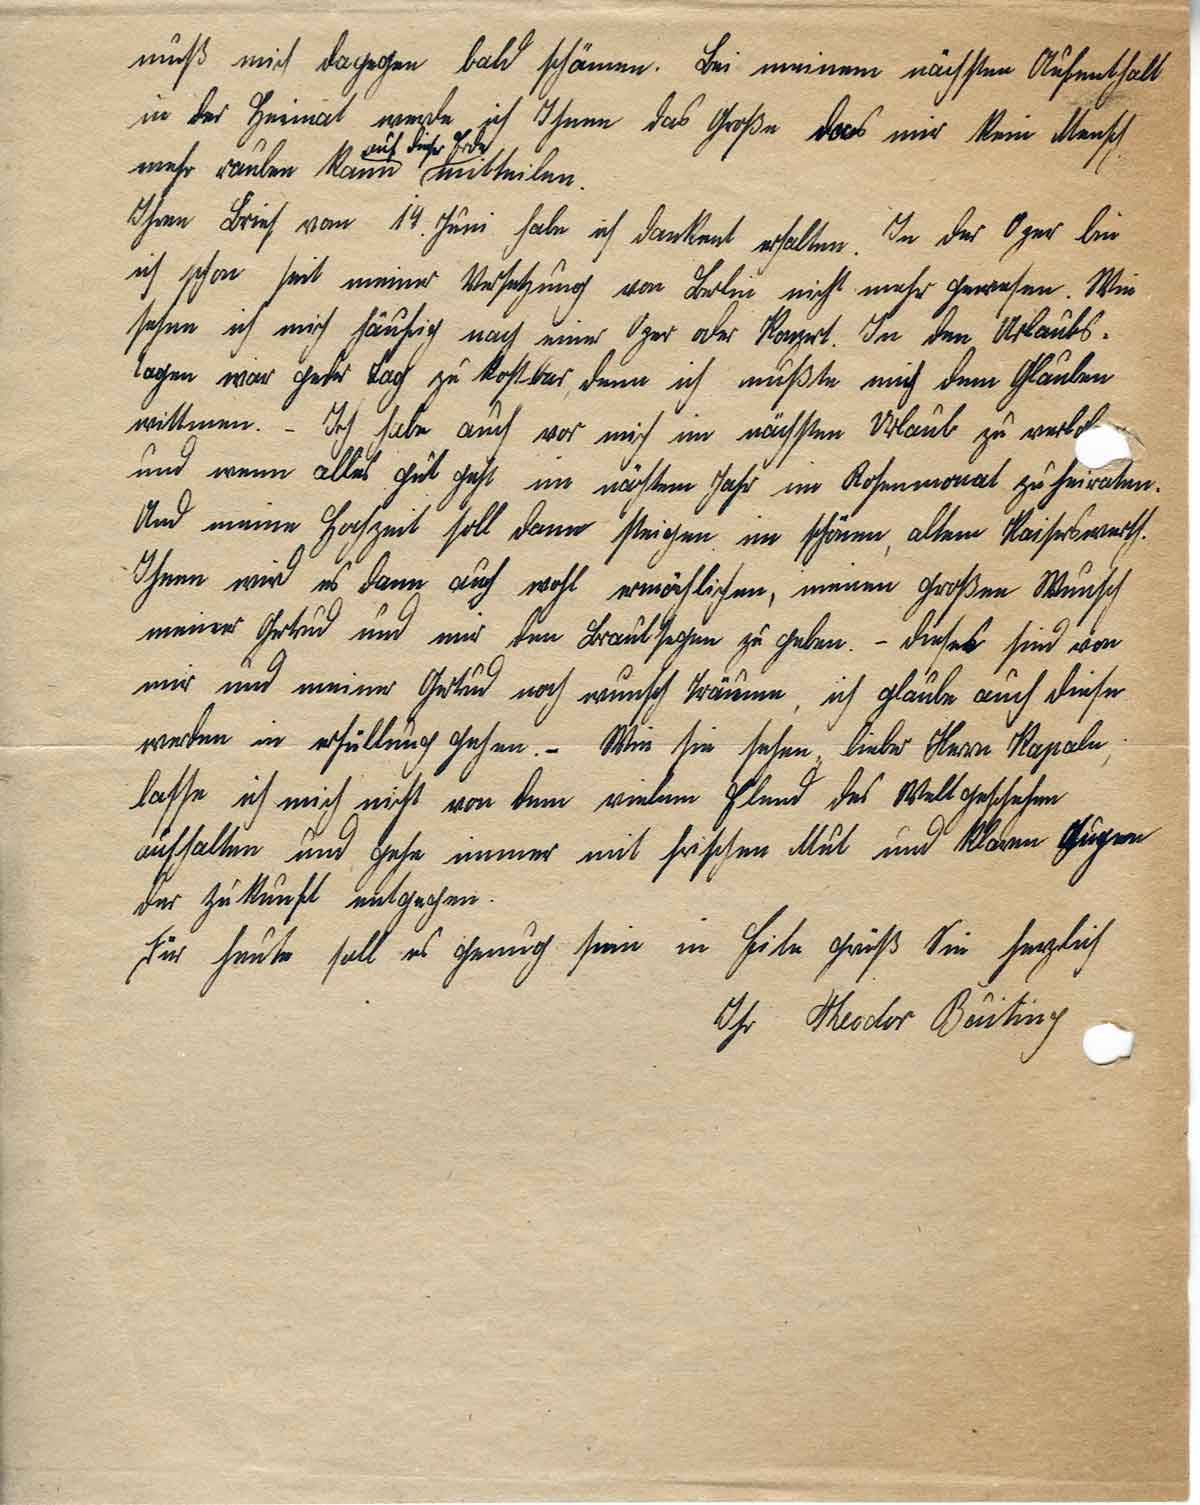 muß mich dagegen bald schämen. Bei meinem nächsten Aufenthalt
in der Heimat werde ich Ihnen das Große das mir kein Mensch
auf dieser Erde
mehr rauben kann mitteilen.
Ihren Brief vom 14. Juni habe ich dankent erhalten. In der Oper bin
ich schon seit meiner Versetzung von Berlin nicht mehr gewesen. Wie
sehne ich mich häufig nach einer Oper oder Konzert. In den Urlaubs-
tagen war jeder Tag zu kostbar, denn ich mußte mich dem Glauben
wittmen. – Ich habe auch vor mich im nächsten Urlaub zu verlob
und wenn alles gut geht im nächstem Jahr im Rosenmonat zu heiraten.
Und meine Hochzeit soll dann steigen im schönen, altem Kaiserswerth.
Ihnen wird es dann auch wohl ermöchlichen, meinen großen Wunsch
meiner Gertrud und mir den Brautsegen zu geben. – dieses sind von
mir und meiner Gertrud noch wunsch Träume, ich glaube auch diese
werden in erfüllung gehen. – Wie sie sehen, lieber Herr Kapaln,
lasse ich mich nicht von dem vielem Elend des Weltgeschehen
aufhalten und gehe immer mit frischen Mut und klaren Augen
der Zukunft entgegen.
Für heute soll es genug sein in Eile grüß Sie herzlich
Ihr Theodor Büiting